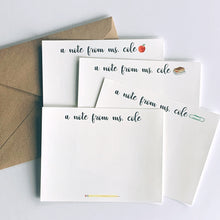 a note from ms. cole
a note from ms. cole
a note from ms. cole
a note from ms. cole